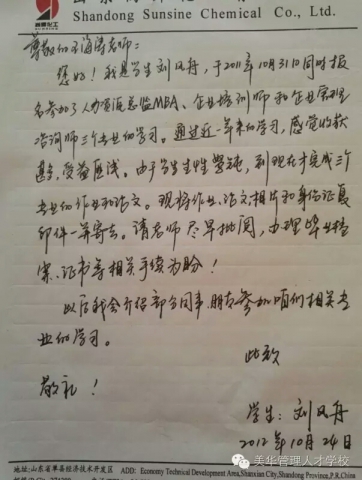 Shandong Sunsine Chemical Co., Ltd.
尊敬的王海涛老师：
您好！我是学生刘风舟，于2011年10月31日同时报
名参加了人力资源总监MBA、企业培训师和企业管理
咨询师三个专业的学习。通过近一年来的学习，感觉收获
甚多，受益匪浅。由于学生生性愚钝，到现在才完成三个
专业的作业和论文。现将作业、论文、相片和身份证复
印件一并寄去。请老师尽早批阅，办理毕业档
案、证书等相关手续为盼！
以后我会介绍部分同事、朋友参加咱们相关专
业的学习。
此致
敬礼！
学生：刘风舟
2012年10月24日
地址:山东省单县经济技术开发区 ADD: Economy Technical Development Area, Shanxian, Shandong Province, P.R.China
美华管理人才学校